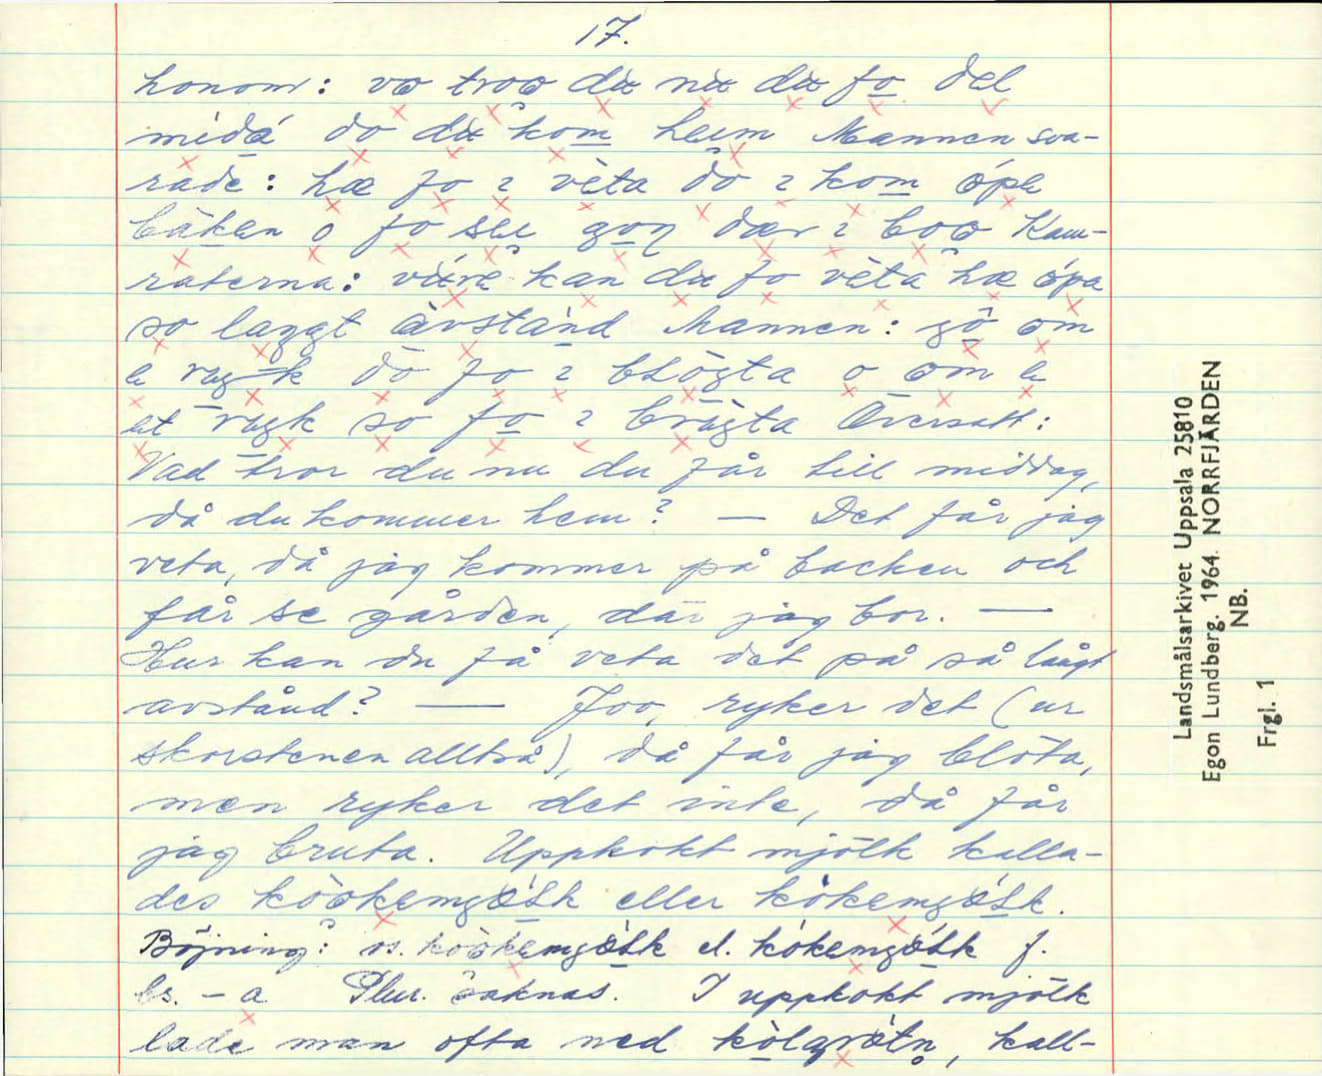 17.
honom: væ troo du nu du fo del
midá do du kom heim Mannen sva-
rade: hæ fo i vèta do i kom ópe
bàken o fo see gon dær i boo Kam-
raterna: vúre kan du fo vèta hæ ópa
so laggt àvstánd Mannen: jô om
e ryk do fo i blögta o om e
et ryk so fo i brygta Översatt:
Vad tror du nu du får till middag,
då du kommer hem? — Det får jag
veta, då jag kommer på backen och
får se gården, där jag bor. —
Hur kan du få veta det på så långt
avstånd? — Joo, ryker det (ur
skorstenen alltså), då får jag blöta,
men ryker det inte, då får
jag bruta. Uppkokt mjölk kalla-
des kòokemjölk eller kòkemjölk.
Böjning: os. kòokemjölk el. kókemjölk f.
bs. -a Plur. saknas. I uppkokt mjölk
lade man ofta ned kòlgròtn, kall-
Landsmålsarkivet Uppsala 25810
Egon Lundberg. 1964. NORRFJÄRDEN
NB.
Frgl. 1